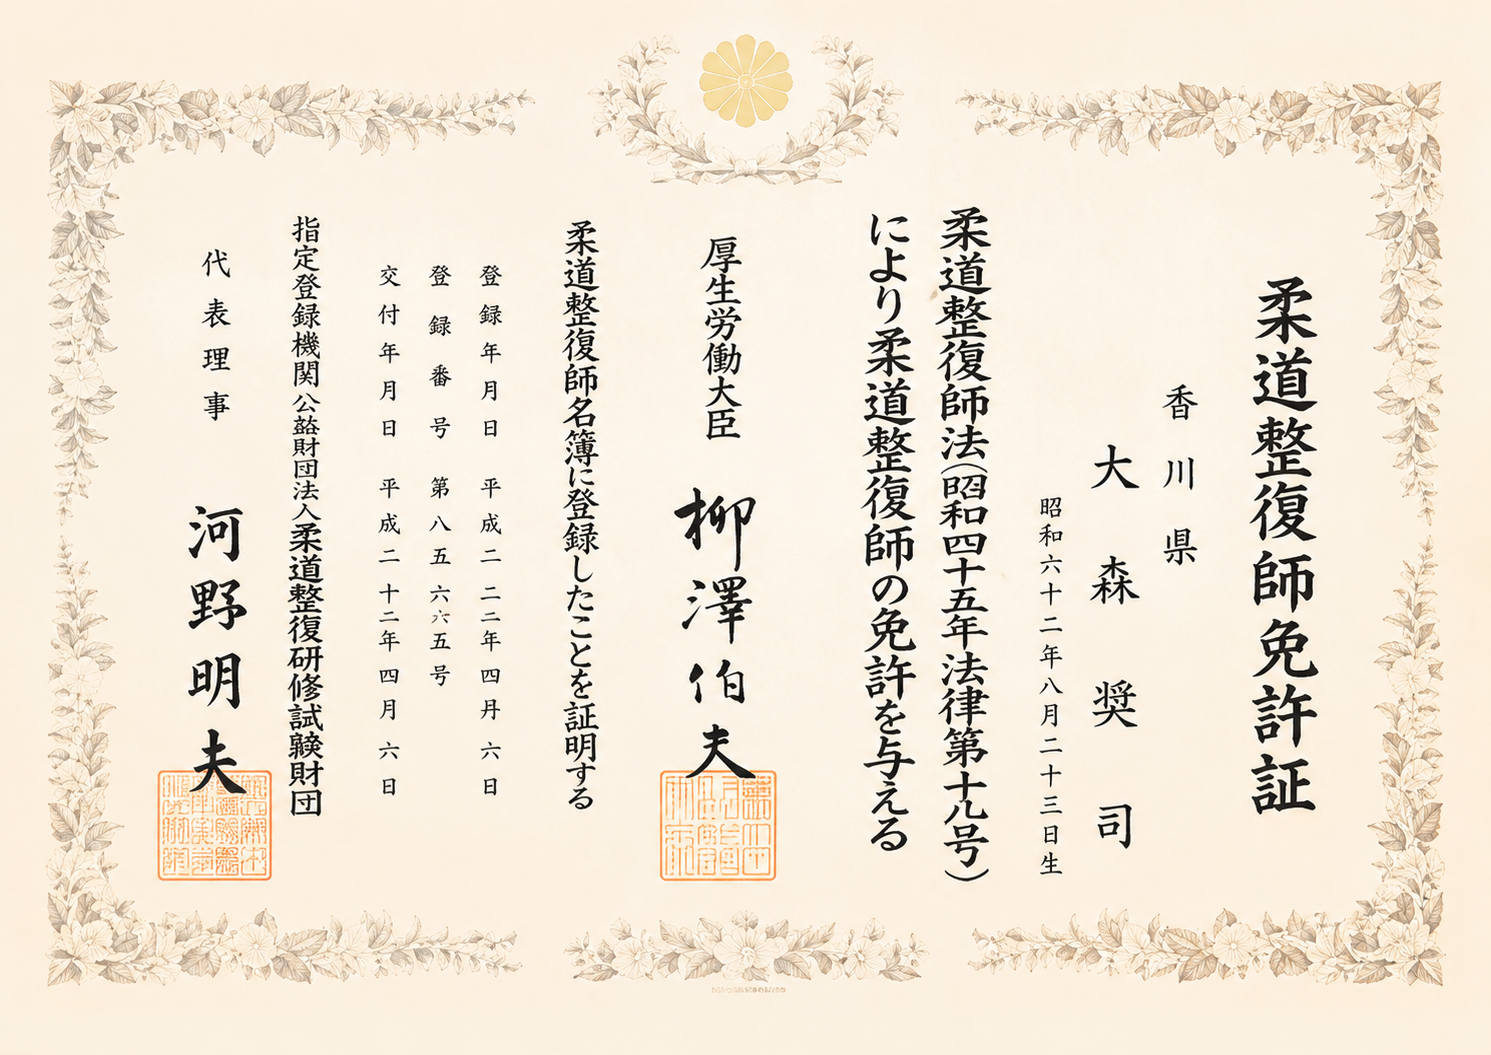 柔道整復師免許証
香川県
大森奨司
昭和六十二年八月二十三日生
柔道整復師法(昭和四十五年法律第十九号)
により柔道整復師の免許を与える
厚生労働大臣 柳澤伯夫
柔道整復師名簿に登録したことを証明する
登録年月日 平成二二二年四月六日
登録番号 第八五六六五号
交付年月日 平成二十二年四月六日
指定登録機関 公益財団法人柔道整復研修試験財団
代表理事 河野明夫